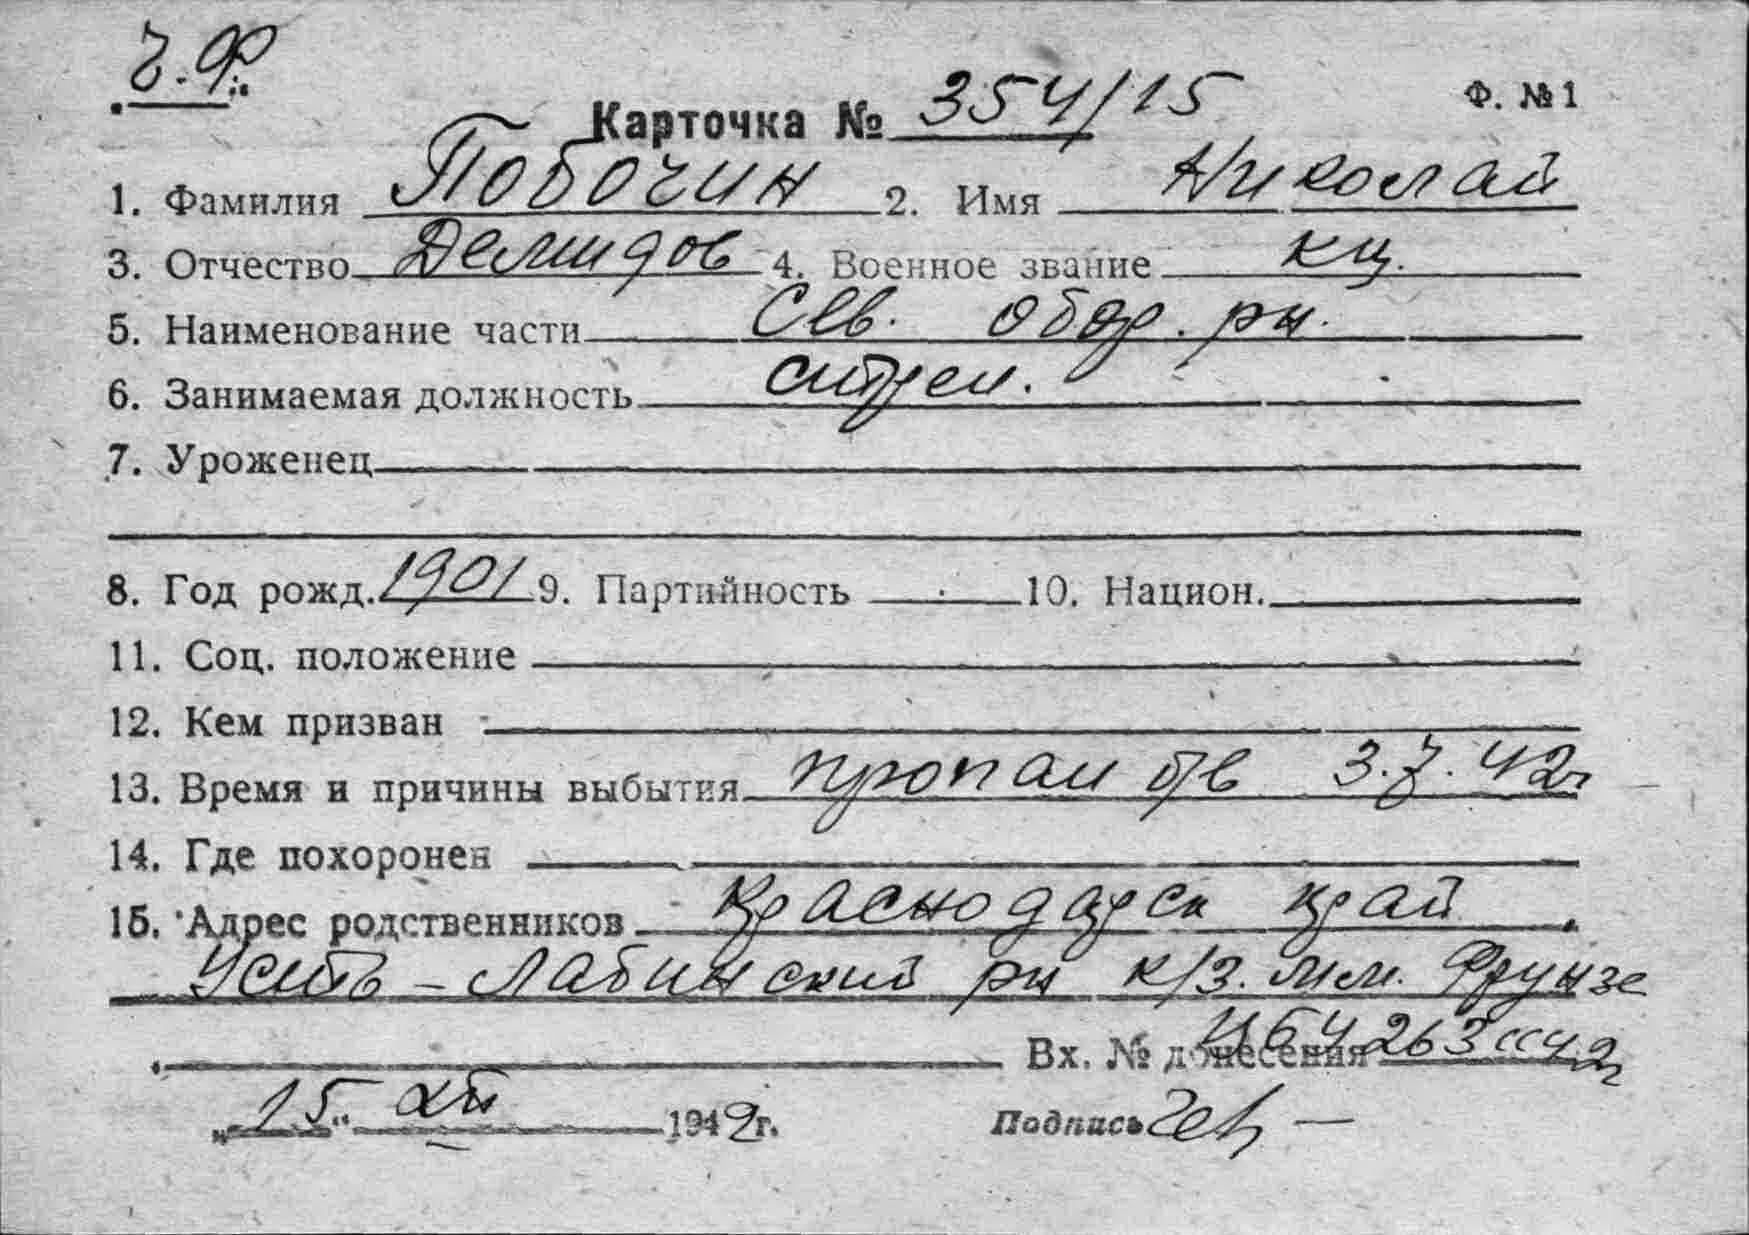 Ч.Ф.
Карточка № 354/15 Ф. №1
1. Фамилия Побочин 2. Имя Николай
3. Отчество Демидов 4. Военное звание кц.
5. Наименование части Сев. обор. рн.
6. Занимаемая должность стрел.
7. Уроженец
8. Год рожд. 1901 9. Партийность 10. Национ.
11. Соц. положение
12. Кем призван
13. Время и причины выбытия пропал б/в 3.7.42г
14. Где похоронен
15. Адрес родственников Краснодарск край
Усть-Лабинский рн к/з. им. Фрунзе
Вх. № донесения
„15“ XII 1942г. Подпись